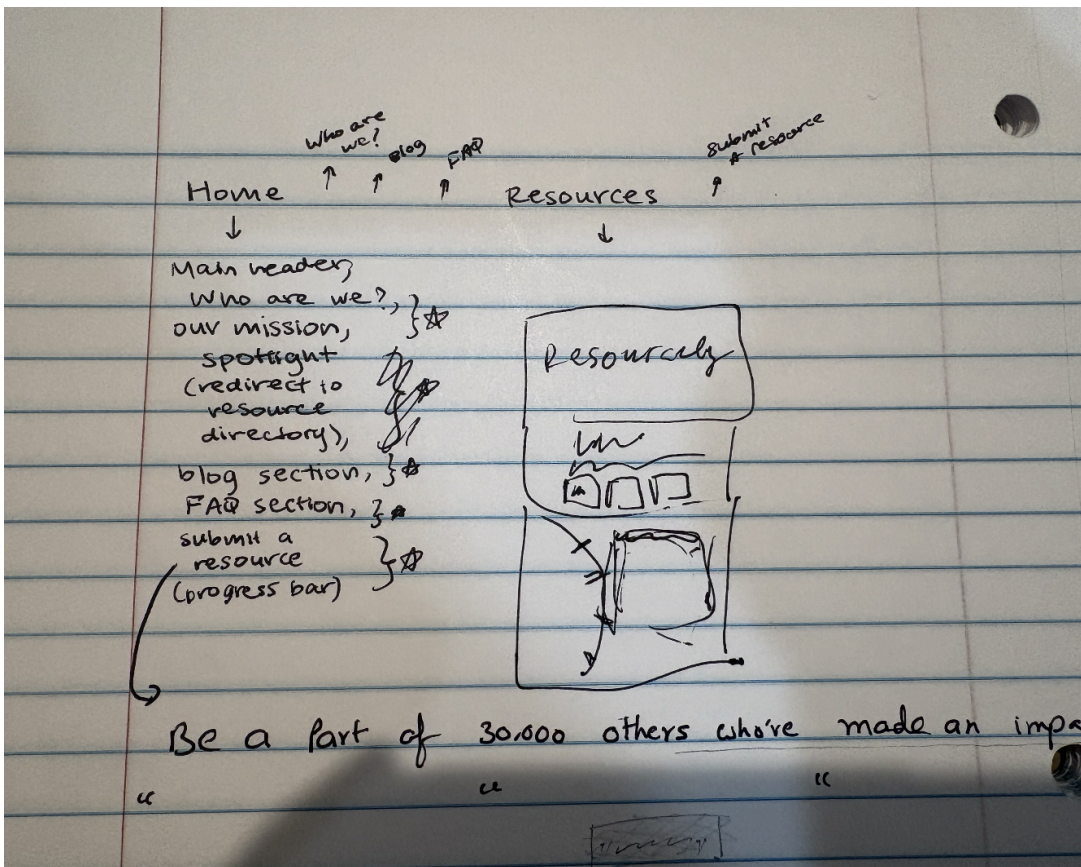 Who are
we?
Blog
FAQ
submit
a resource
Home
Resources
Main header,
Who are we?,
our mission,
spotlight
(redirect to
resource
directory),
blog section,
FAQ section,
submit a
resource
(progress bar)
Be a Part of 30.000 others who've made an impa